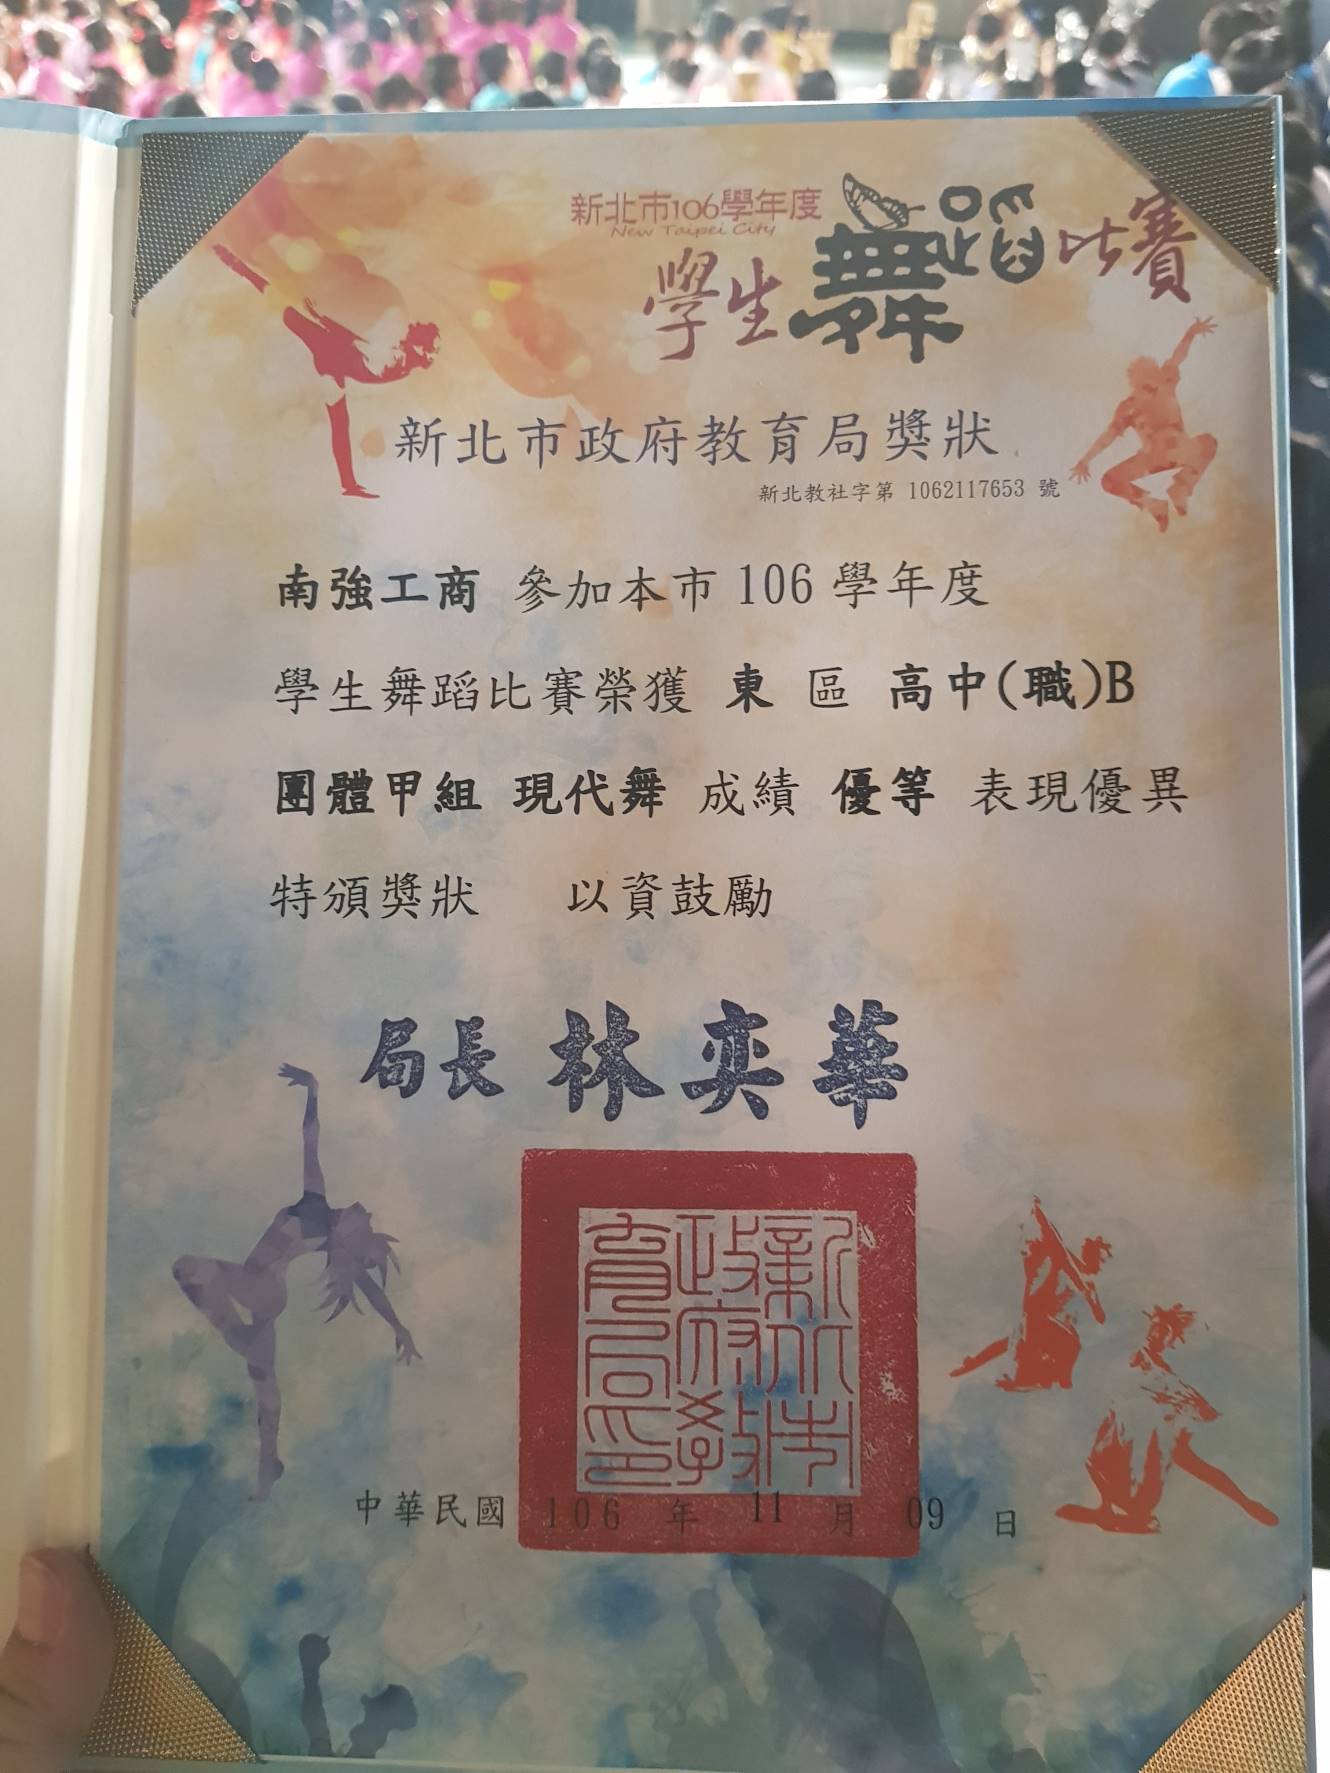 新北市106學年度
New Taipei City
學生舞蹈比賽
新北市政府教育局獎狀
新北教社字第 1062117653 號
南強工商 參加本市 106 學年度
學生舞蹈比賽榮獲 東 區 高中(職)B
團體甲組 現代舞 成績 優等 表現優異
特頒獎狀 以資鼓勵
局長 林奕華
新北市
政府教
育局印
中華民國 106 年 11 月 09 日